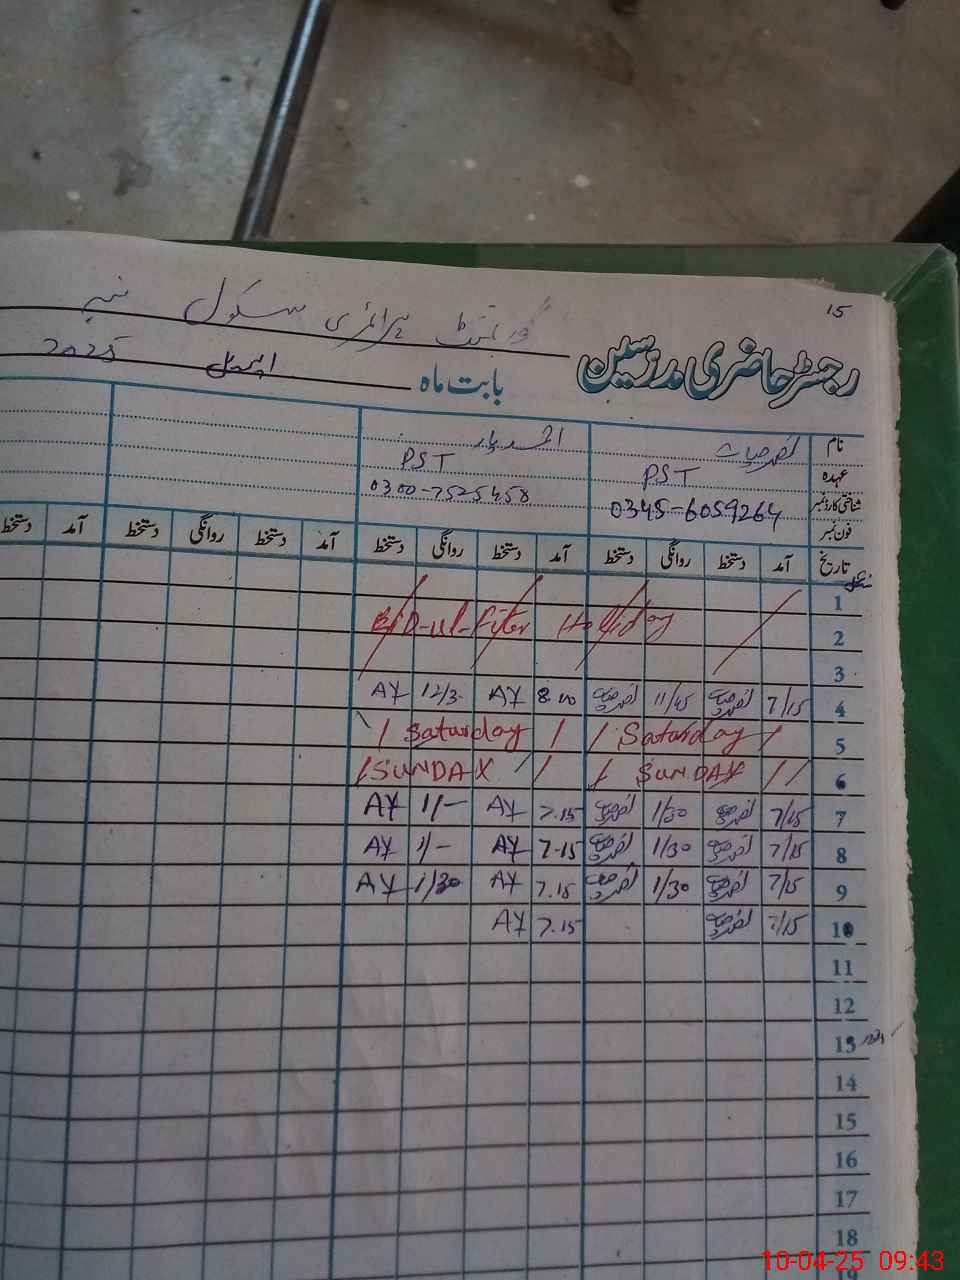 15
گورنمنٹ پرائمری سکول
رجسٹر حاضری مدرسین
بابت ماہ اپریل 2025
نام
عہدہ PST PST
شناختی کارڈ نمبر 0345-6059264 0300-7525458
فون نمبر
تاریخ آمد دستخط روانگی دستخط آمد دستخط روانگی دستخط آمد دستخط روانگی دستخط آمد دستخط
1
2 EID-ul-Fiter Holiday
3
4 7/15 11/45 8.00 AY 12/3 AY
5 Saturday Saturday
6 SUNDAY SUNDAY
7 7/15 1/30 7.15 AY 1/- AY
8 7/15 1/30 7.15 AY 1/- AY
9 7/15 1/30 7.15 AY 1/30 AY
10 7/15 7.15 AY
11
12
13
14
15
16
17
18
19
10-04-25 09:43